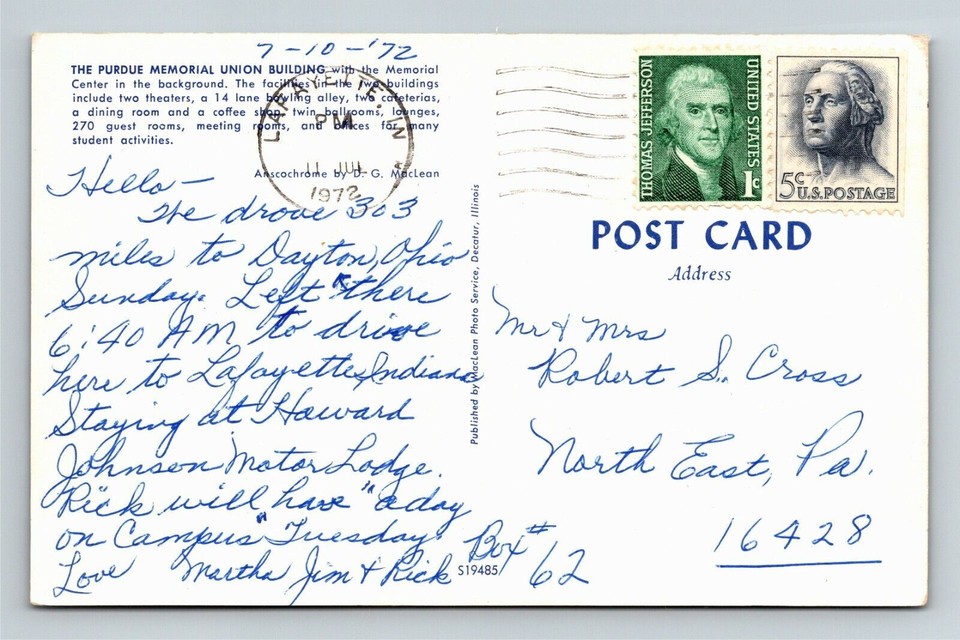 7-10-'72
THE PURDUE MEMORIAL UNION BUILDING with the Memorial
Center in the background. The facilities in the two buildings
include two theaters, a 14 lane bowling alley, two cafeterias,
a dining room and a coffee shop, twin ballrooms, lounges,
270 guest rooms, meeting rooms, and offices for many
student activities.
Anscochrome by D. G. MacLean
LAFAYETTE, IN
PM
11 JUL
1972
Hello —
We drove 303
miles to Dayton, Ohio
Sunday. Left there
6:40 AM to drive
here to Lafayette, Indiana
Staying at Howard
Johnson Motor Lodge.
Rick will have "a day
on Campus" Tuesday.
Love Martha Jim & Rick
S19485
Published by MacLean Photo Service, Decatur, Illinois
THOMAS JEFFERSON
UNITED STATES
1c
5c U.S. POSTAGE
POST CARD
Address
Mr & Mrs
Robert S. Cross
North East, Pa.
16428
Box #
62